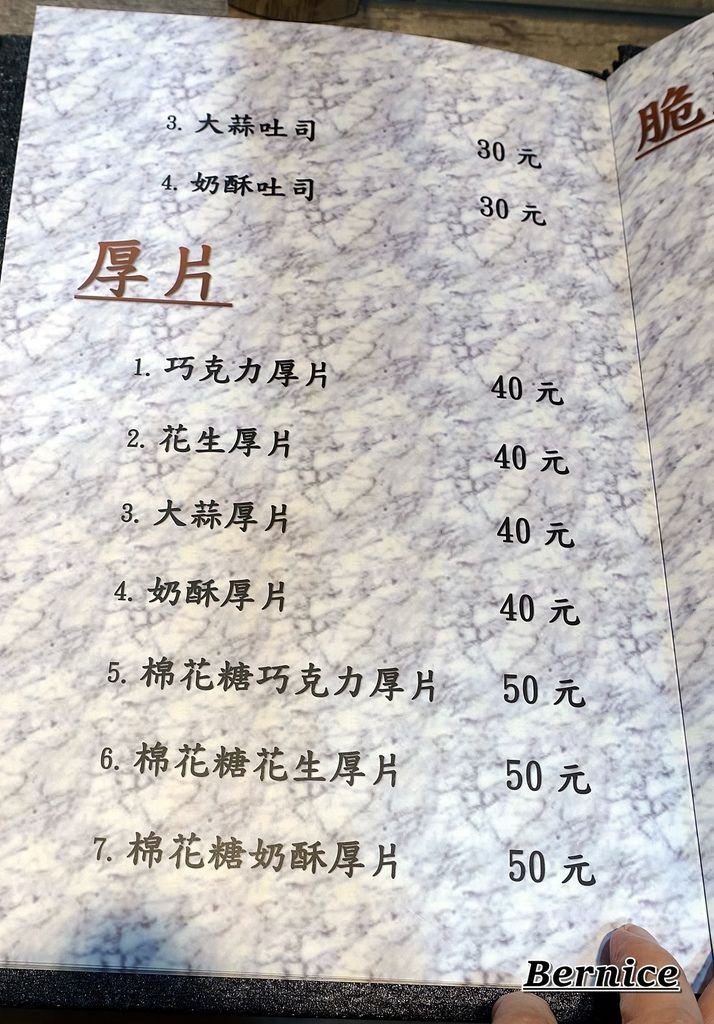 3. 大蒜吐司 30 元
4. 奶酥吐司 30 元
厚片
1. 巧克力厚片 40 元
2. 花生厚片 40 元
3. 大蒜厚片 40 元
4. 奶酥厚片 40 元
5. 棉花糖巧克力厚片 50 元
6. 棉花糖花生厚片 50 元
7. 棉花糖奶酥厚片 50 元
脆
Bernice